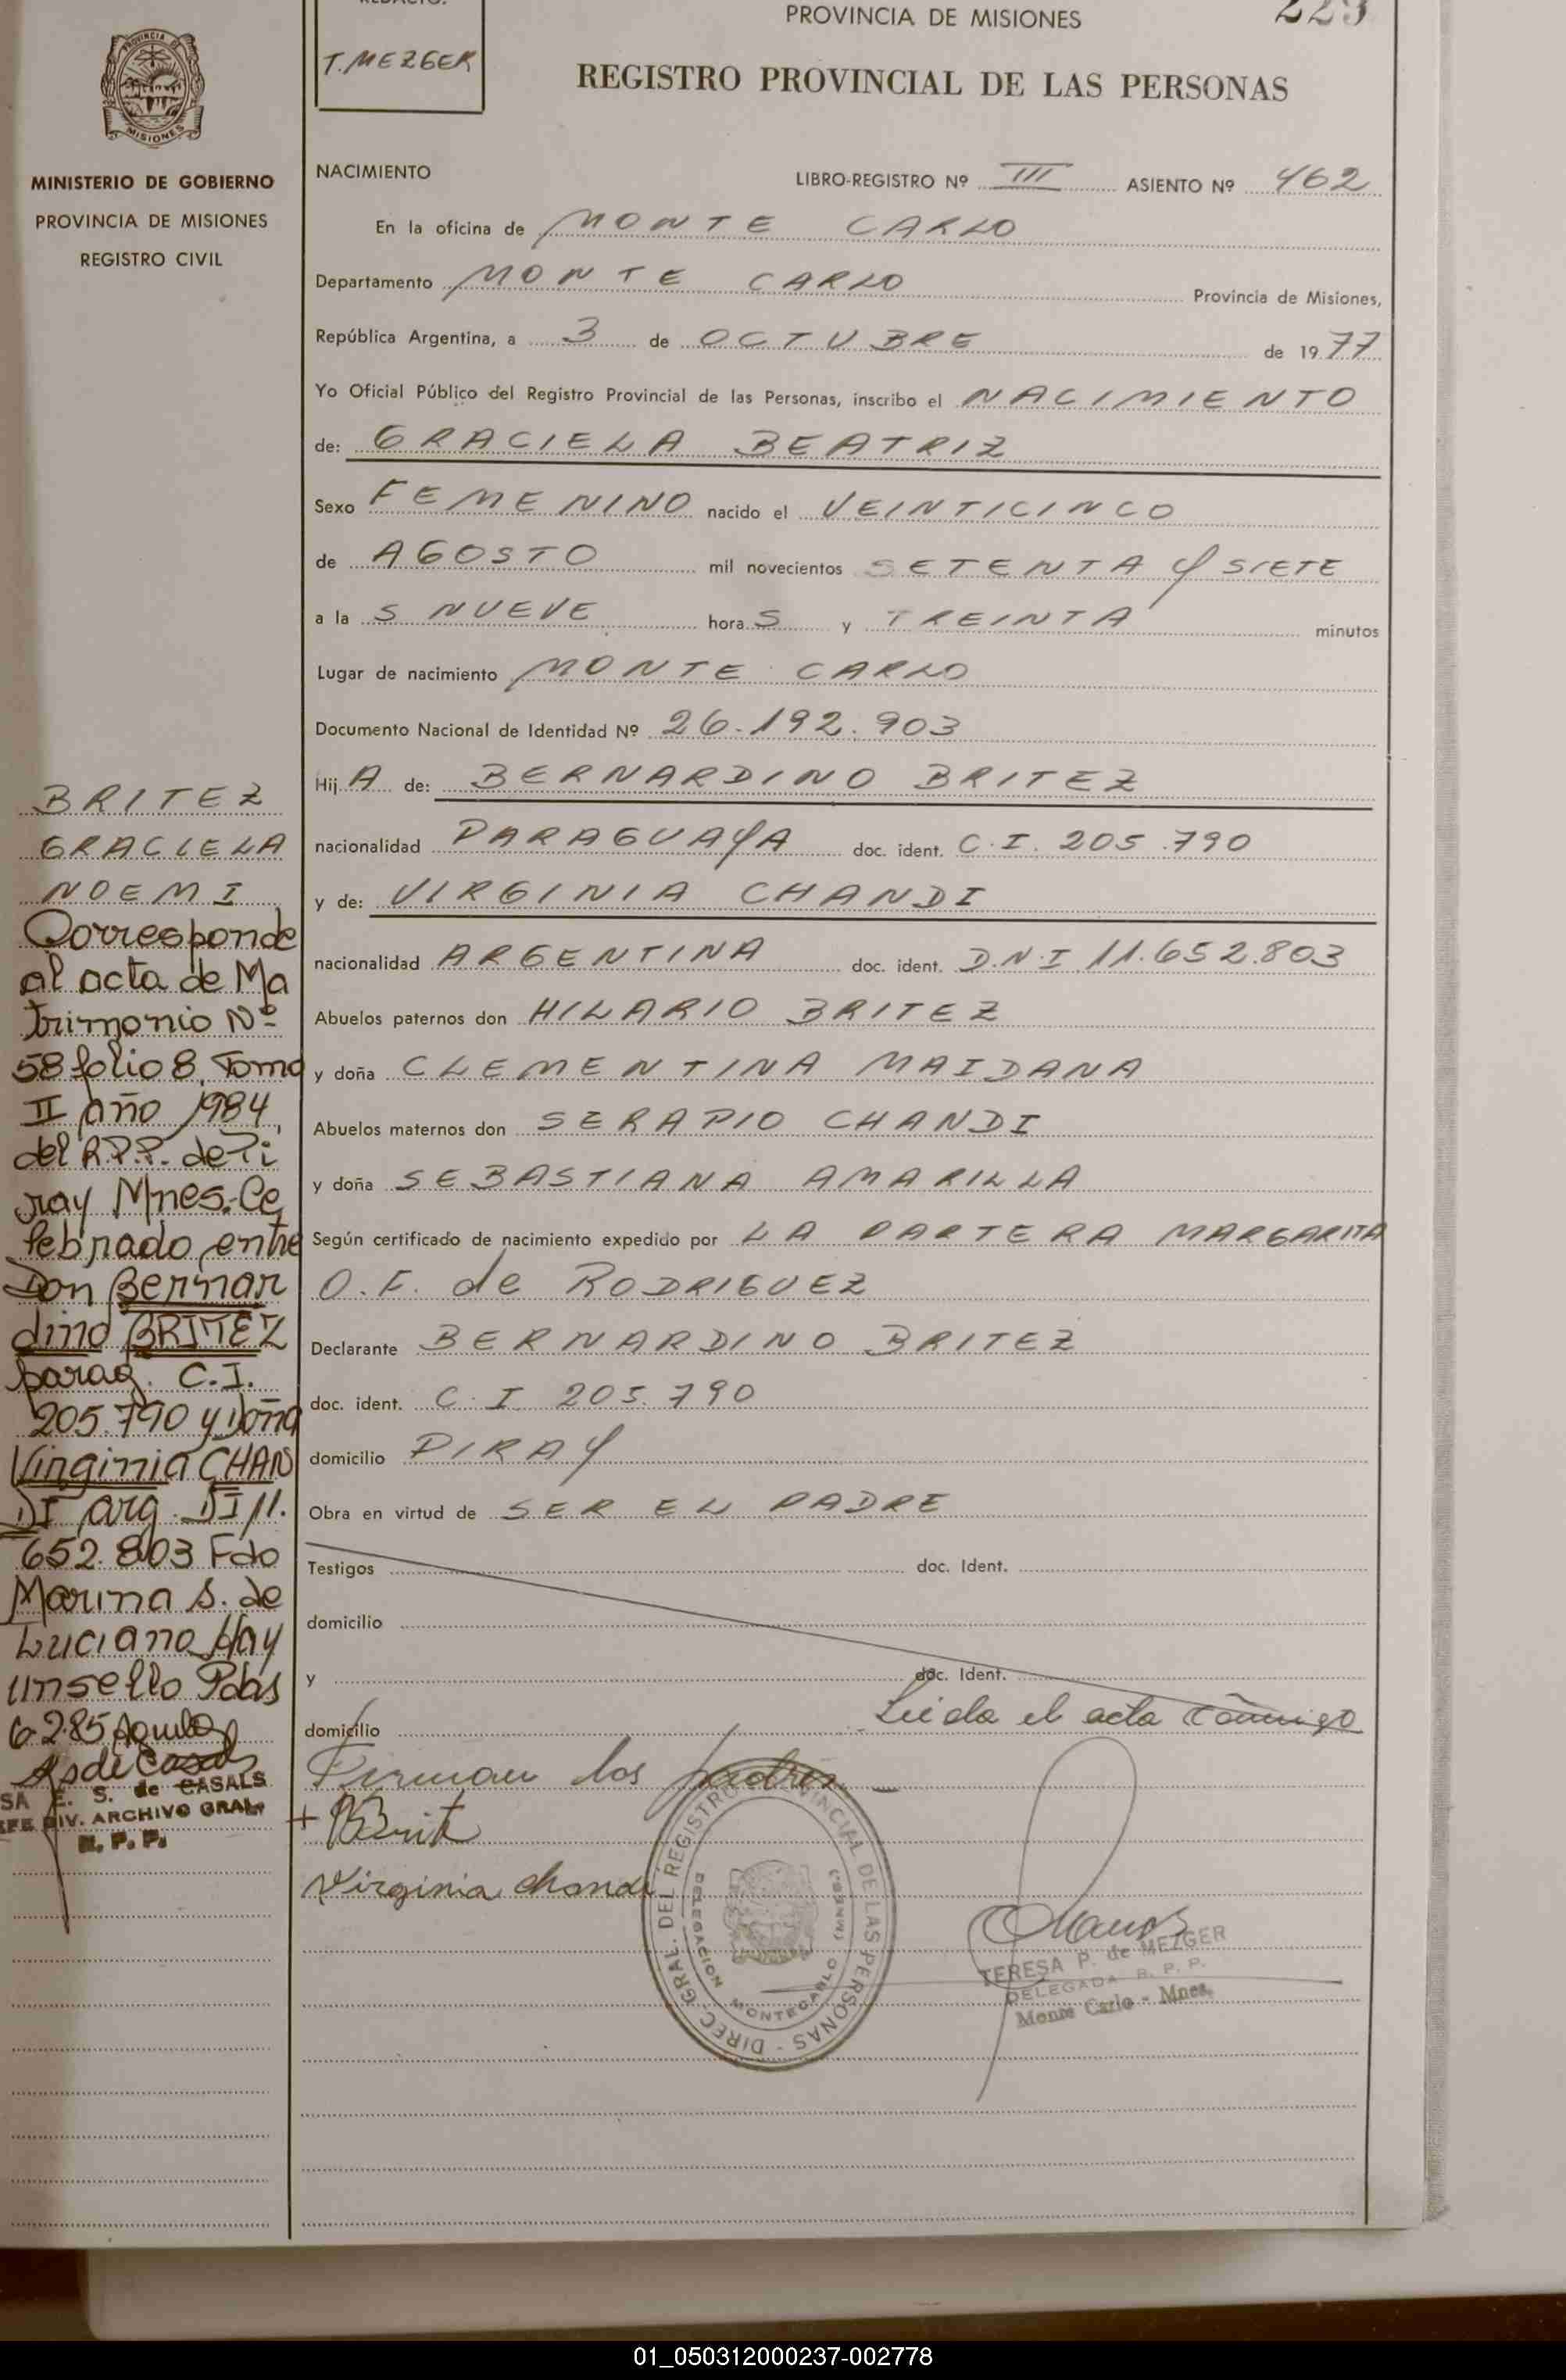 REDACTO:
T. MEZGER
PROVINCIA DE MISIONES
223
REGISTRO PROVINCIAL DE LAS PERSONAS
MISIONES
MINISTERIO DE GOBIERNO
PROVINCIA DE MISIONES
REGISTRO CIVIL
NACIMIENTO
LIBRO-REGISTRO Nº III ASIENTO Nº 462
En la oficina de MONTE CARLO
Departamento MONTE CARLO Provincia de Misiones,
República Argentina, a 3 de OCTUBRE de 1977
Yo Oficial Público del Registro Provincial de las Personas, inscribo el NACIMIENTO
de: GRACIELA BEATRIZ
Sexo FEMENINO nacido el VEINTICINCO
de AGOSTO mil novecientos SETENTA y SIETE
a la S NUEVE hora S y TREINTA minutos
Lugar de nacimiento MONTE CARLO
Documento Nacional de Identidad Nº 26.192.903
Hij A de: BERNARDINO BRITEZ
nacionalidad PARAGUAyA doc. ident. C.I. 205.790
y de: VIRGINIA CHANDI
nacionalidad ARGENTINA doc. ident. D.N.I 11.652.803
Abuelos paternos don HILARIO BRITEZ
y doña CLEMENTINA MAIDANA
Abuelos maternos don SERAPIO CHANDI
y doña SEBASTIANA AMARILLA
Según certificado de nacimiento expedido por LA PARTERA MARGARITA
O.F. de RODRIGUEZ
Declarante BERNARDINO BRITEZ
doc. ident. C.I. 205.790
domicilio PIRAY
Obra en virtud de SER EL PADRE
Testigos doc. Ident.
domicilio
y doc. Ident.
domicilio Leida el acta
Firman los padres
Virginia Chandi
BRITEZ
GRACIELA
NOEMI
Corresponde
al acta de Ma
trimonio Nº
58 folio 8, Tomo
II año 1984,
del R.P.P. de Pi
ray Mnes. Ce
lebrado entre
Don Bernar
dino BRITEZ
parag. C.I.
205.790 y Doña
Virginia CHAN
DI arg. DI 11.
652.803 Fdo
Marina S. de
Luciano Hay
un sello Pdas
6-2-85
E. S. de CASALS
DIV. ARCHIVO GRAL.
R. P. P.
DIREC. GRAL. DEL REGISTRO PROVINCIAL DE LAS PERSONAS
DELEGACION MONTECARLO (MNES.)
TERESA P. de MEZGER
DELEGADA R. P. P.
Monte Carlo - Mnes.
01_050312000237-002778